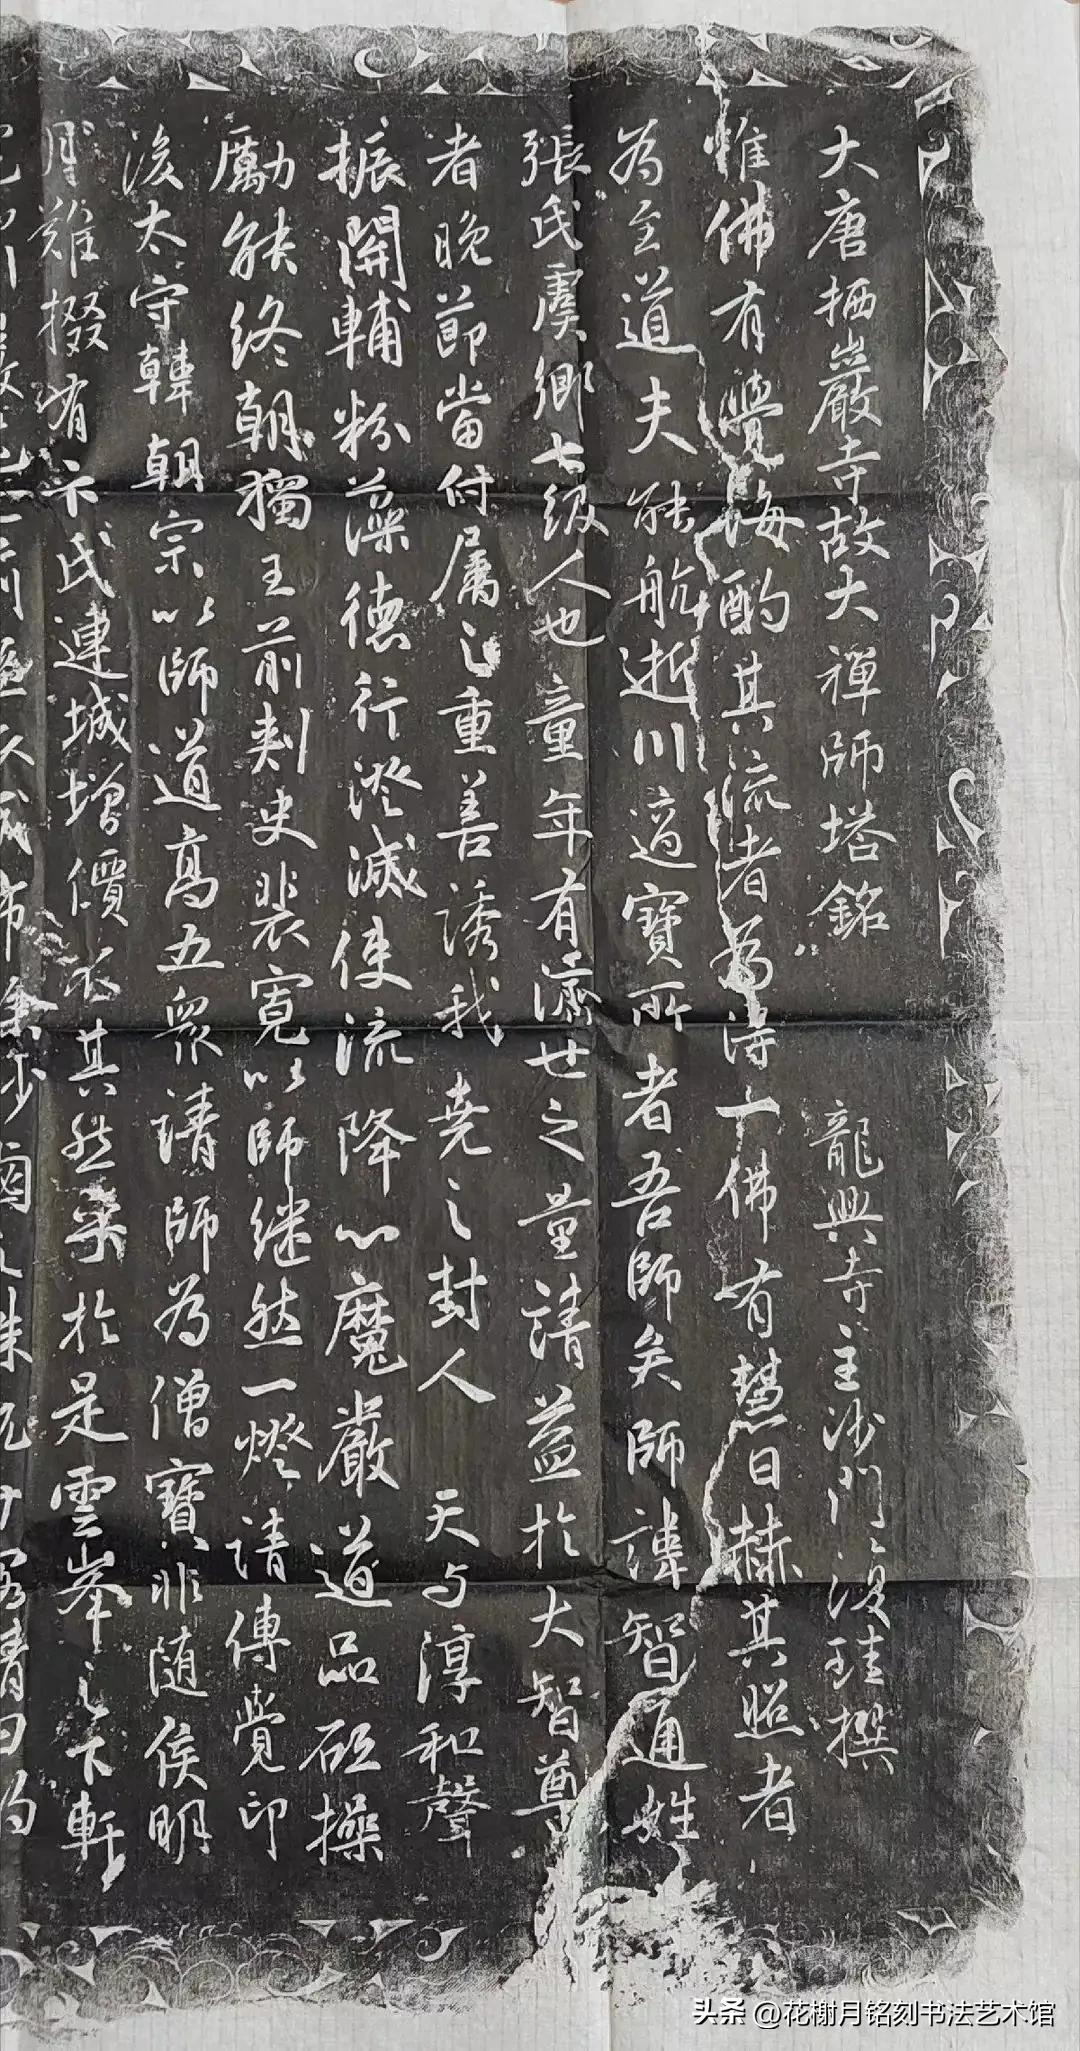 大唐栖巖寺故大禪師塔銘 龍興寺主沙門復珪撰
惟佛有覺海酌其流者為得一佛有慧日赫其照者
為至道夫能航逝川適寶所者吾師矣師諱智通姓
張氏虞鄉七級人也童年有濟世之量請益於大智尊
者晚節當付屬之重善誘我 堯之封人 天与淳和聲
振開輔粉藻德行澄滅使流降心魔嚴道品砥操
勵能終朝獨王前刺史裴寬以師继然一燈請傳覺印
後太守韓朝宗以師道高五眾請師為僧寶非随侯明
月難掇有卞氏連城增價不其然乎於是雲峯之下軒
頭条 @花榭月铭刻书法艺术馆